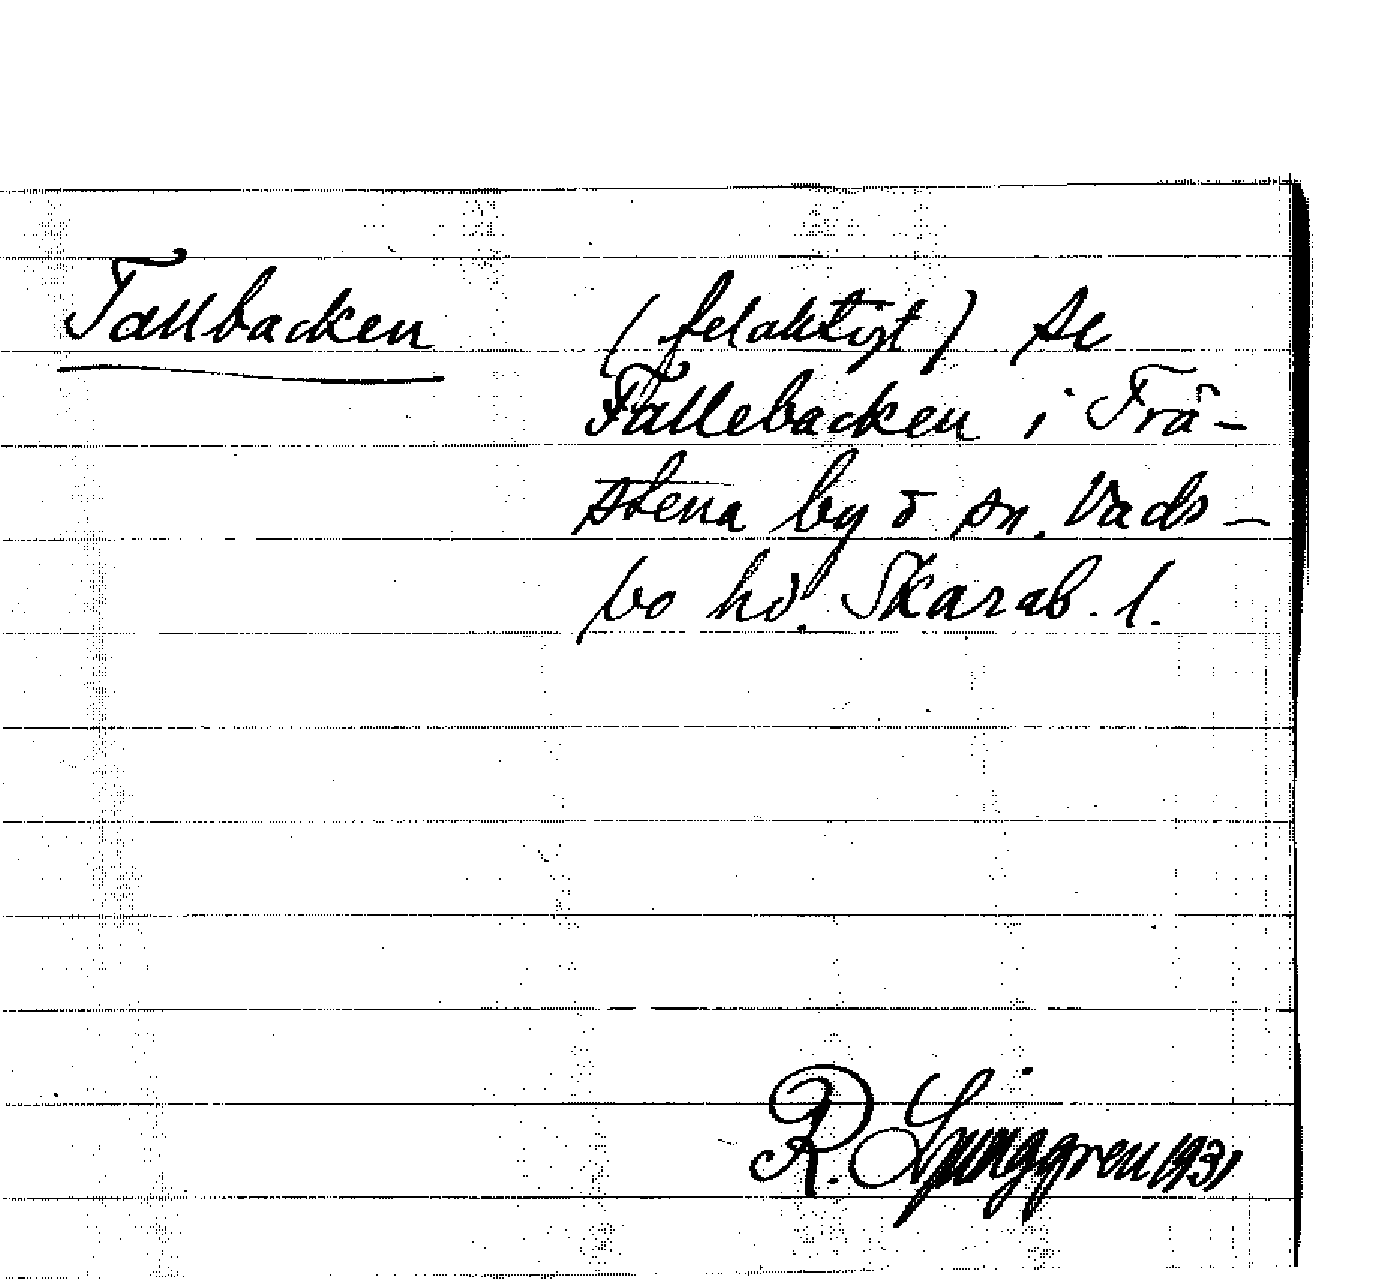 Tallbacken (felaktigt) se
Fallebacken i Frä-
stena by o sn. Vads-
bo hd. Skarab. l.
R. Ljunggren 1931